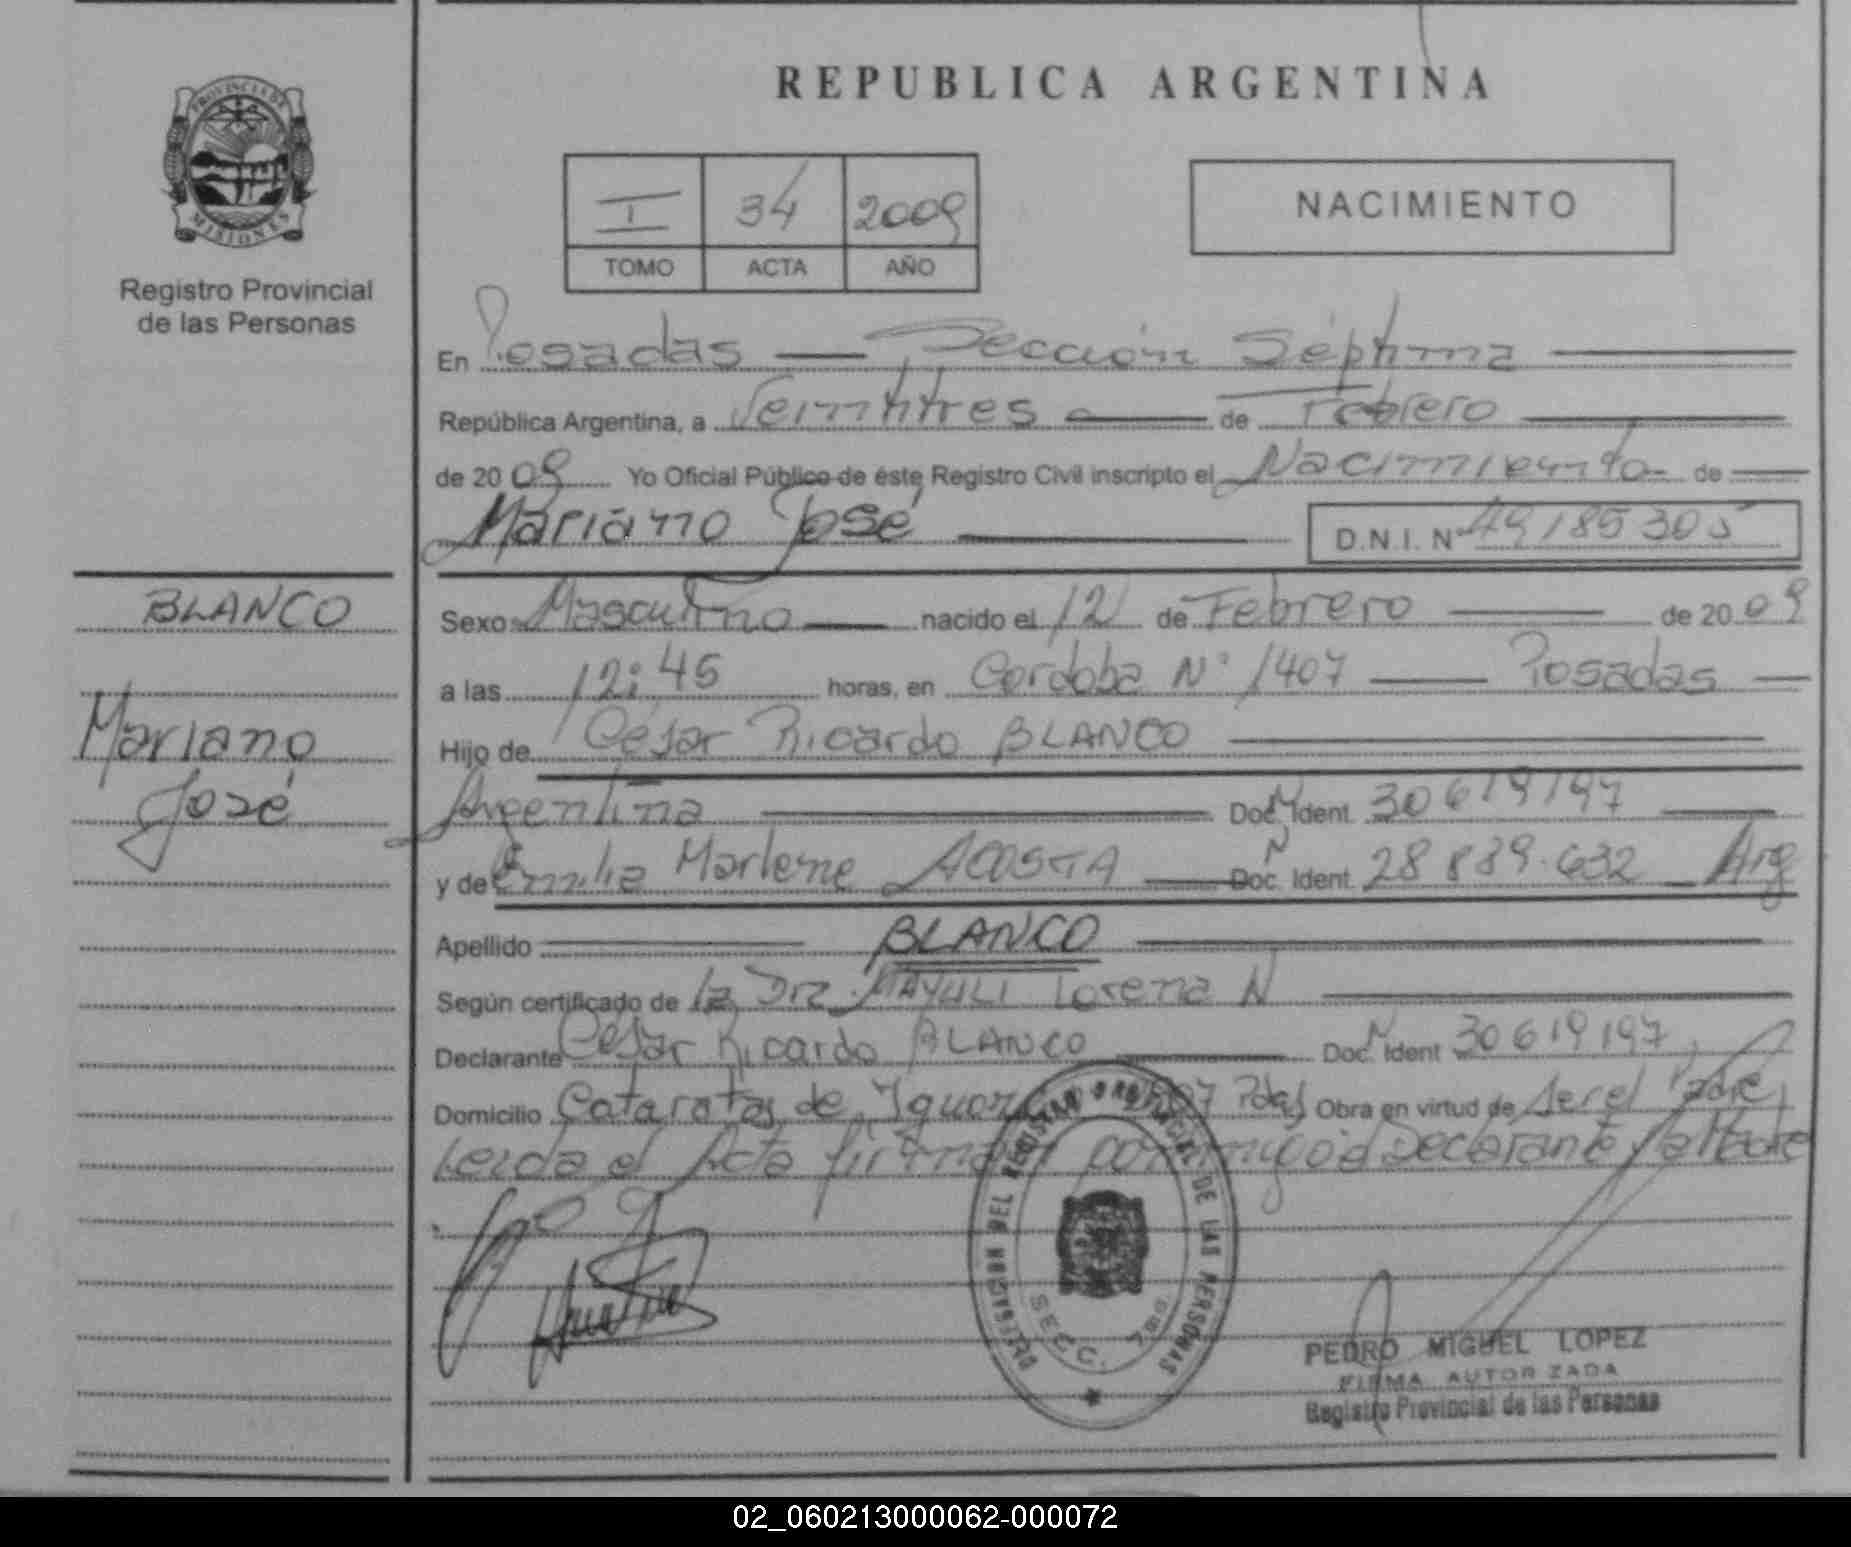 REPUBLICA ARGENTINA
PROVINCIA DE
MISIONES
Registro Provincial
de las Personas
I 34 2009
TOMO ACTA AÑO
NACIMIENTO
En Posadas Sección Séptima
República Argentina, a Veintitres de Febrero
de 20 09 Yo Oficial Público de éste Registro Civil inscripto el Nacimiento de
Mariano José D.N.I. Nº 49185305
BLANCO
Mariano
José
Sexo Masculino nacido el 12 de Febrero de 20 09
a las 12:45 horas, en Cordoba Nº 1407 Posadas
Hijo de César Ricardo BLANCO
Argentina Doc. Ident. 30619197
y de Emilia Marlene ACOSTA Doc. Ident. 28 889.632 Arg
Apellido BLANCO
Según certificado de la Dra Lorena N
Declarante César Ricardo BLANCO Doc. Ident 30619197
Domicilio Cataratas de Pdas Obra en virtud de ser el Padre
Leida el Acta firman conmigo el Declarante y la Madre
DELEGACION DEL REGISTRO PROVINCIAL DE LAS PERSONAS
SECC. 7ma
PEDRO MIGUEL LOPEZ
FIRMA AUTORIZADA
Registro Provincial de las Personas
02_060213000062-000072